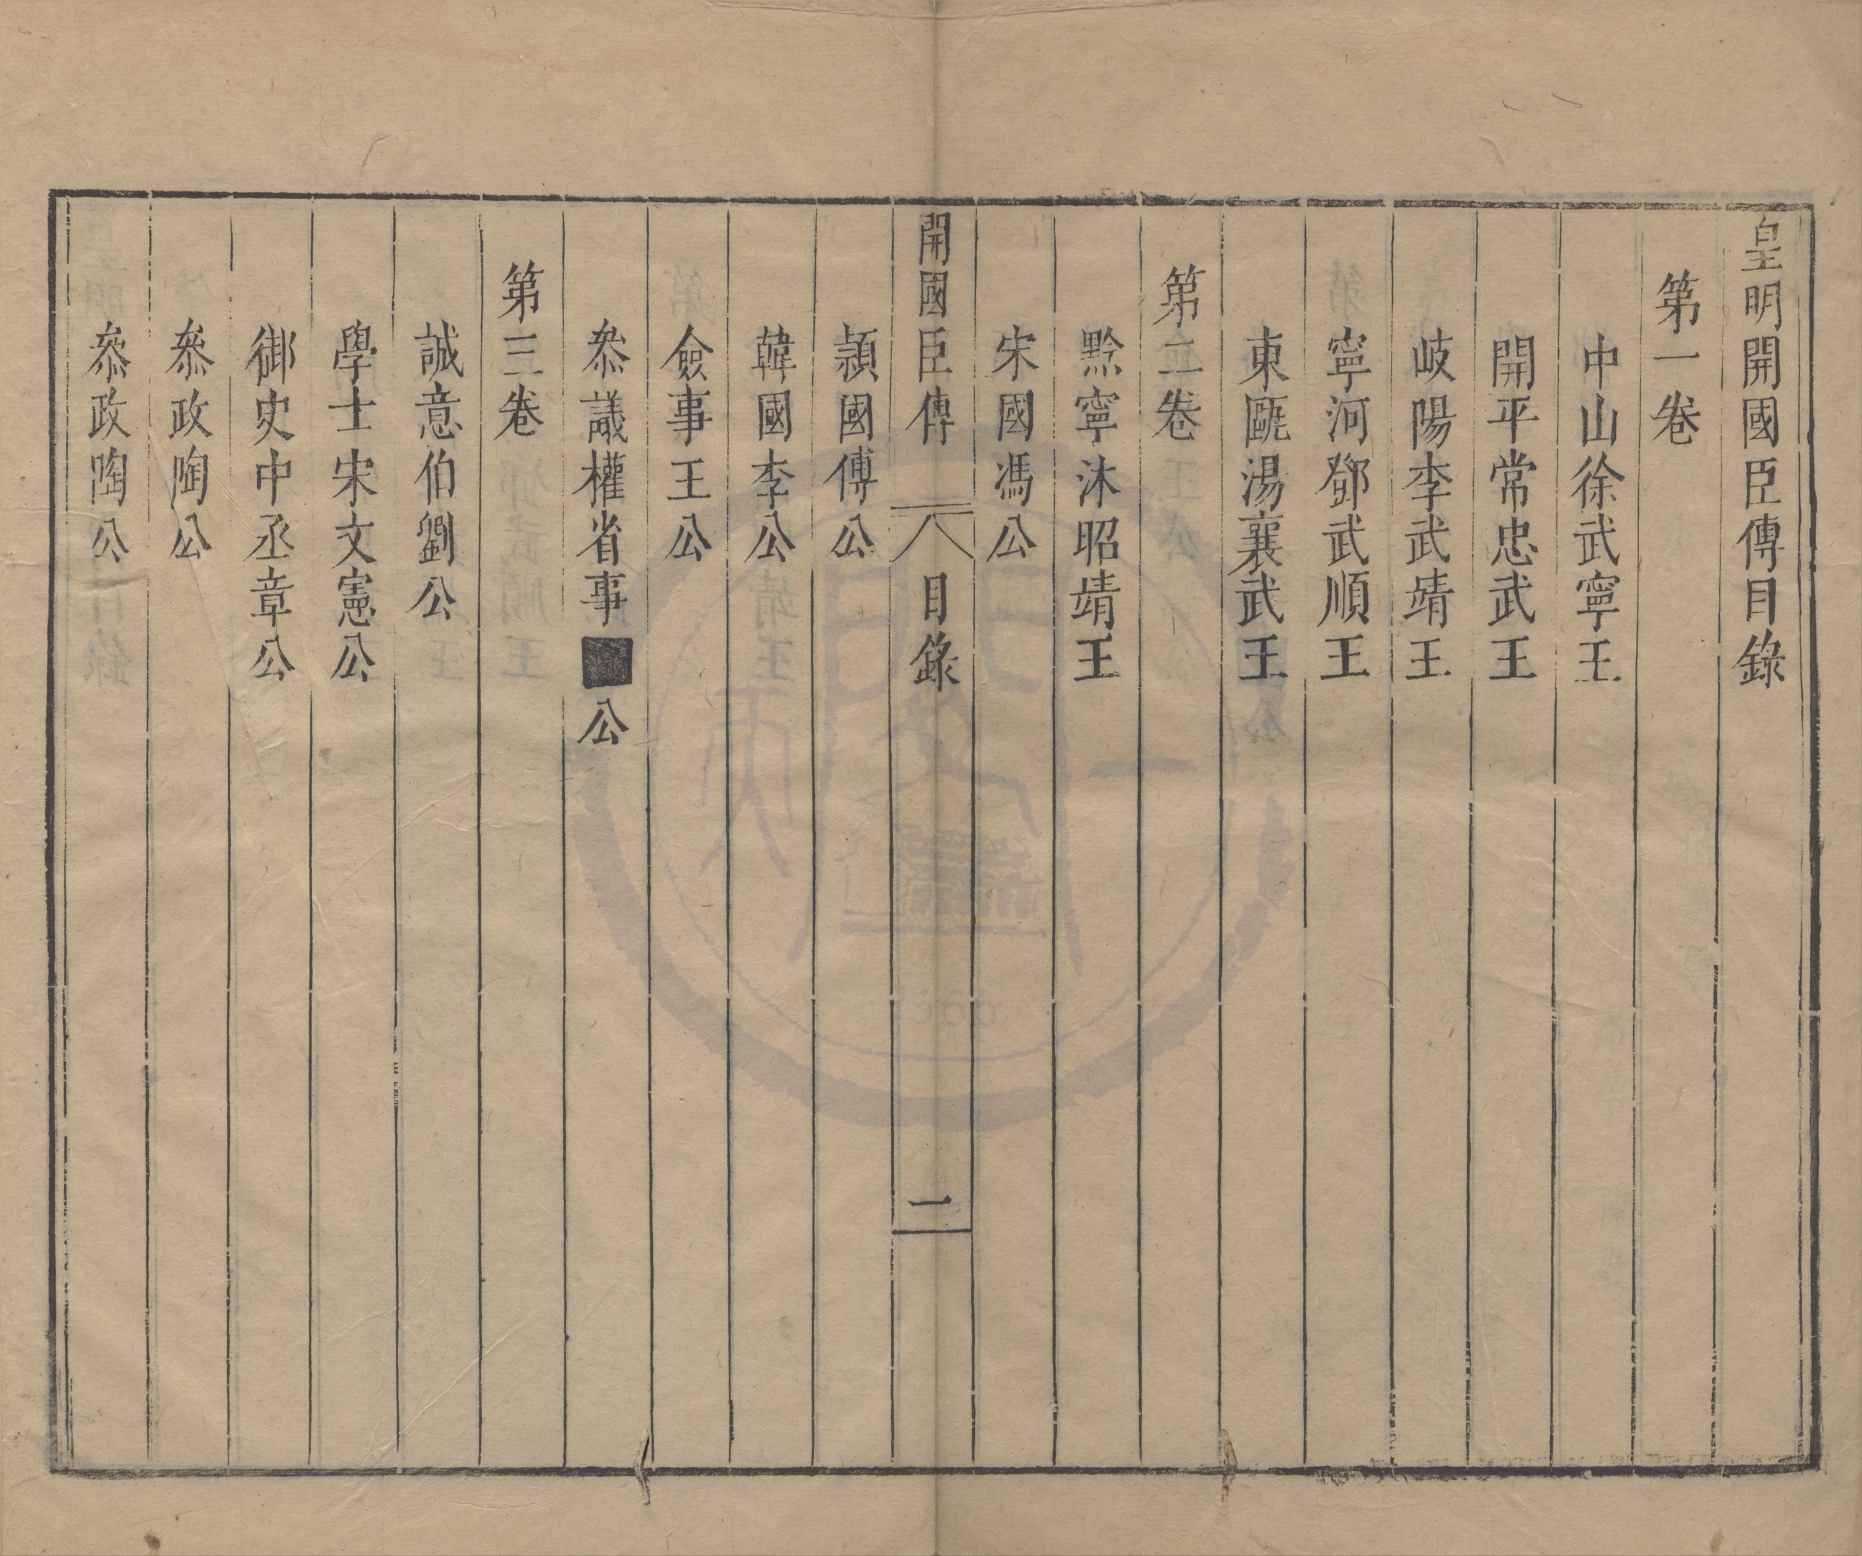 皇明開國臣傳目錄
第一卷
中山徐武寧王
開平常忠武王
岐陽李武靖王
寧河鄧武順王
東甌湯襄武王
第二卷
黔寧沐昭靖王
宋國馮公
開國臣傳
目錄
一
潁國傅公
韓國李公
僉事王公
叅議權省事■公
第三卷
誠意伯劉公
學士宋文憲公
御史中丞章公
叅政陶公
叅政陶公